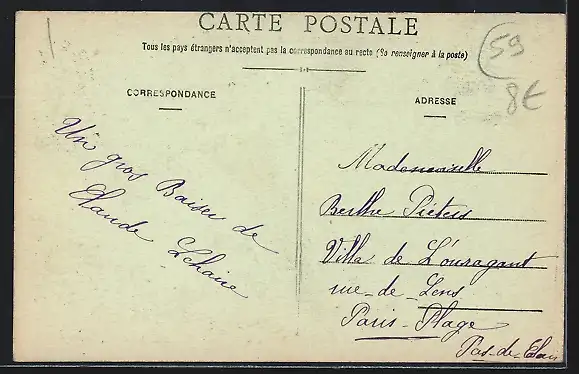 CARTE POSTALE
Tous les pays étrangers n'acceptent pas la correspondance au recto (Se renseigner à la poste)
59
8€
CORRESPONDANCE
ADRESSE
Un gros Baiser de
Claude
Mademoiselle
Berthe Piéters
Villa de L'ouragant
rue-de-Lens
Paris-Plage
Pas-de-Calais